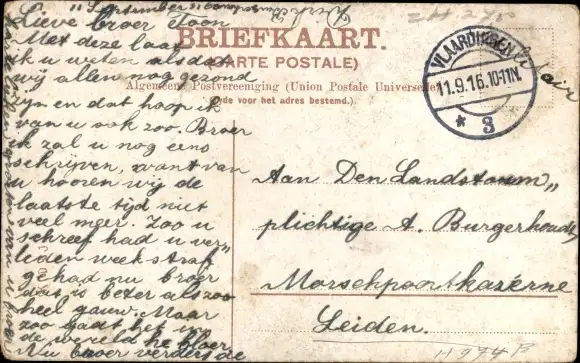 Lieve broer Toon
Met deze laat
ik u weten als dat
wij allen nog gezond
zyn en dat hoop ik
van u ook zoo. Broer
ik zal u nog eens
schrijven, want van
u hooren wij de
laatste tijd niet
veel meer. Zoo u
schreef had u ver„
leden week straf
gehad nu broer
dat is beter als zoo
heel gauw. Maar
zoo gaat het in
de wereld he broer
Nu broer verders de
BRIEFKAART.
(CARTE POSTALE)
Algemeene Postvereeniging (Union Postale Universelle)
Zijde voor het adres bestemd.)
VLAARDINGEN
11.9.16.10-11N.
* 3
Aan Den Landstorm„
plichtige A. Burgerhoudt
Morschpoortkazérne
Leiden.